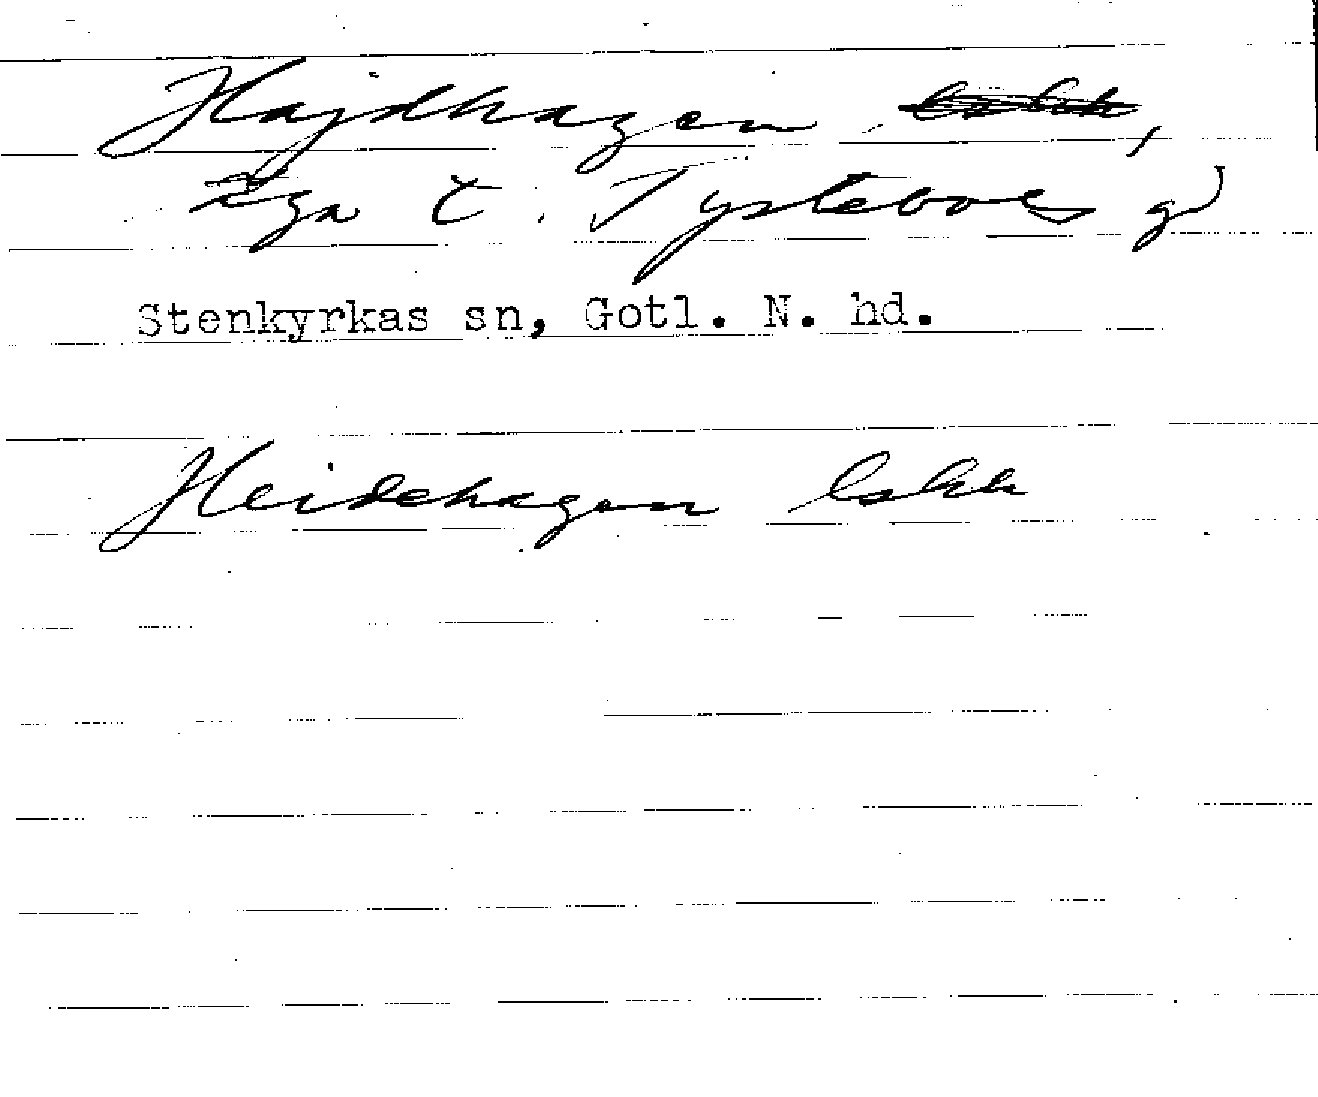 Hajdhagen,
äga t. Tystebols gd
Stenkyrkas sn, Gotl. N. hd.
Heidehagen Lskk